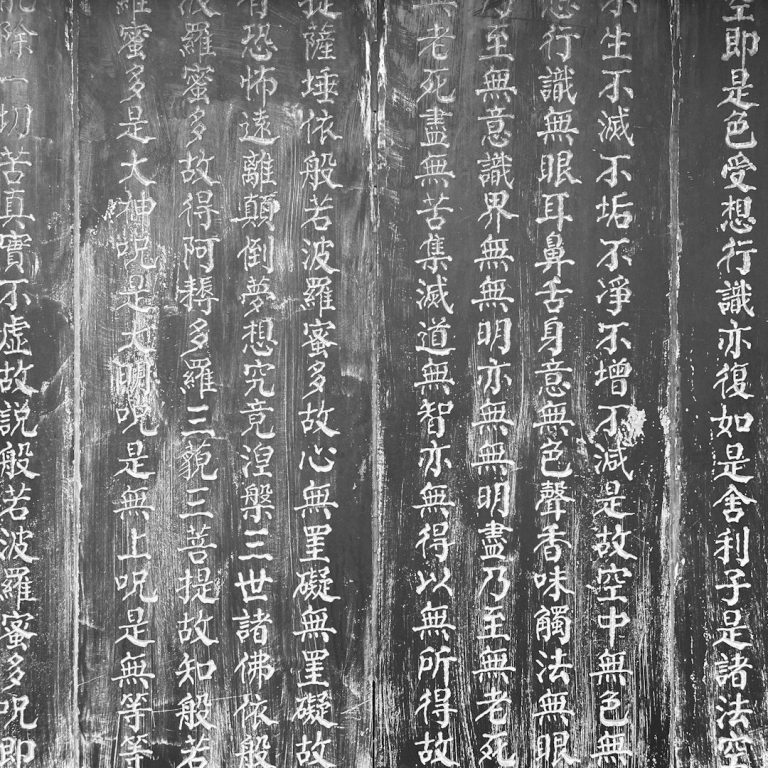 空即是色受想行識亦復如是舍利子是諸法空
不生不滅不垢不淨不增不減是故空中無色無
想行識無眼耳鼻舌身意無色聲香味觸法無眼
乃至無意識界無無明亦無無明盡乃至無老死
無老死盡無苦集滅道無智亦無得以無所得故
提薩埵依般若波羅蜜多故心無罣礙無罣礙故
有恐怖遠離顛倒夢想究竟涅槃三世諸佛依般
波羅蜜多故得阿耨多羅三藐三菩提故知般若
羅蜜多是大神呪是大明呪是無上呪是無等等
能除一切苦真實不虛故說般若波羅蜜多呪即